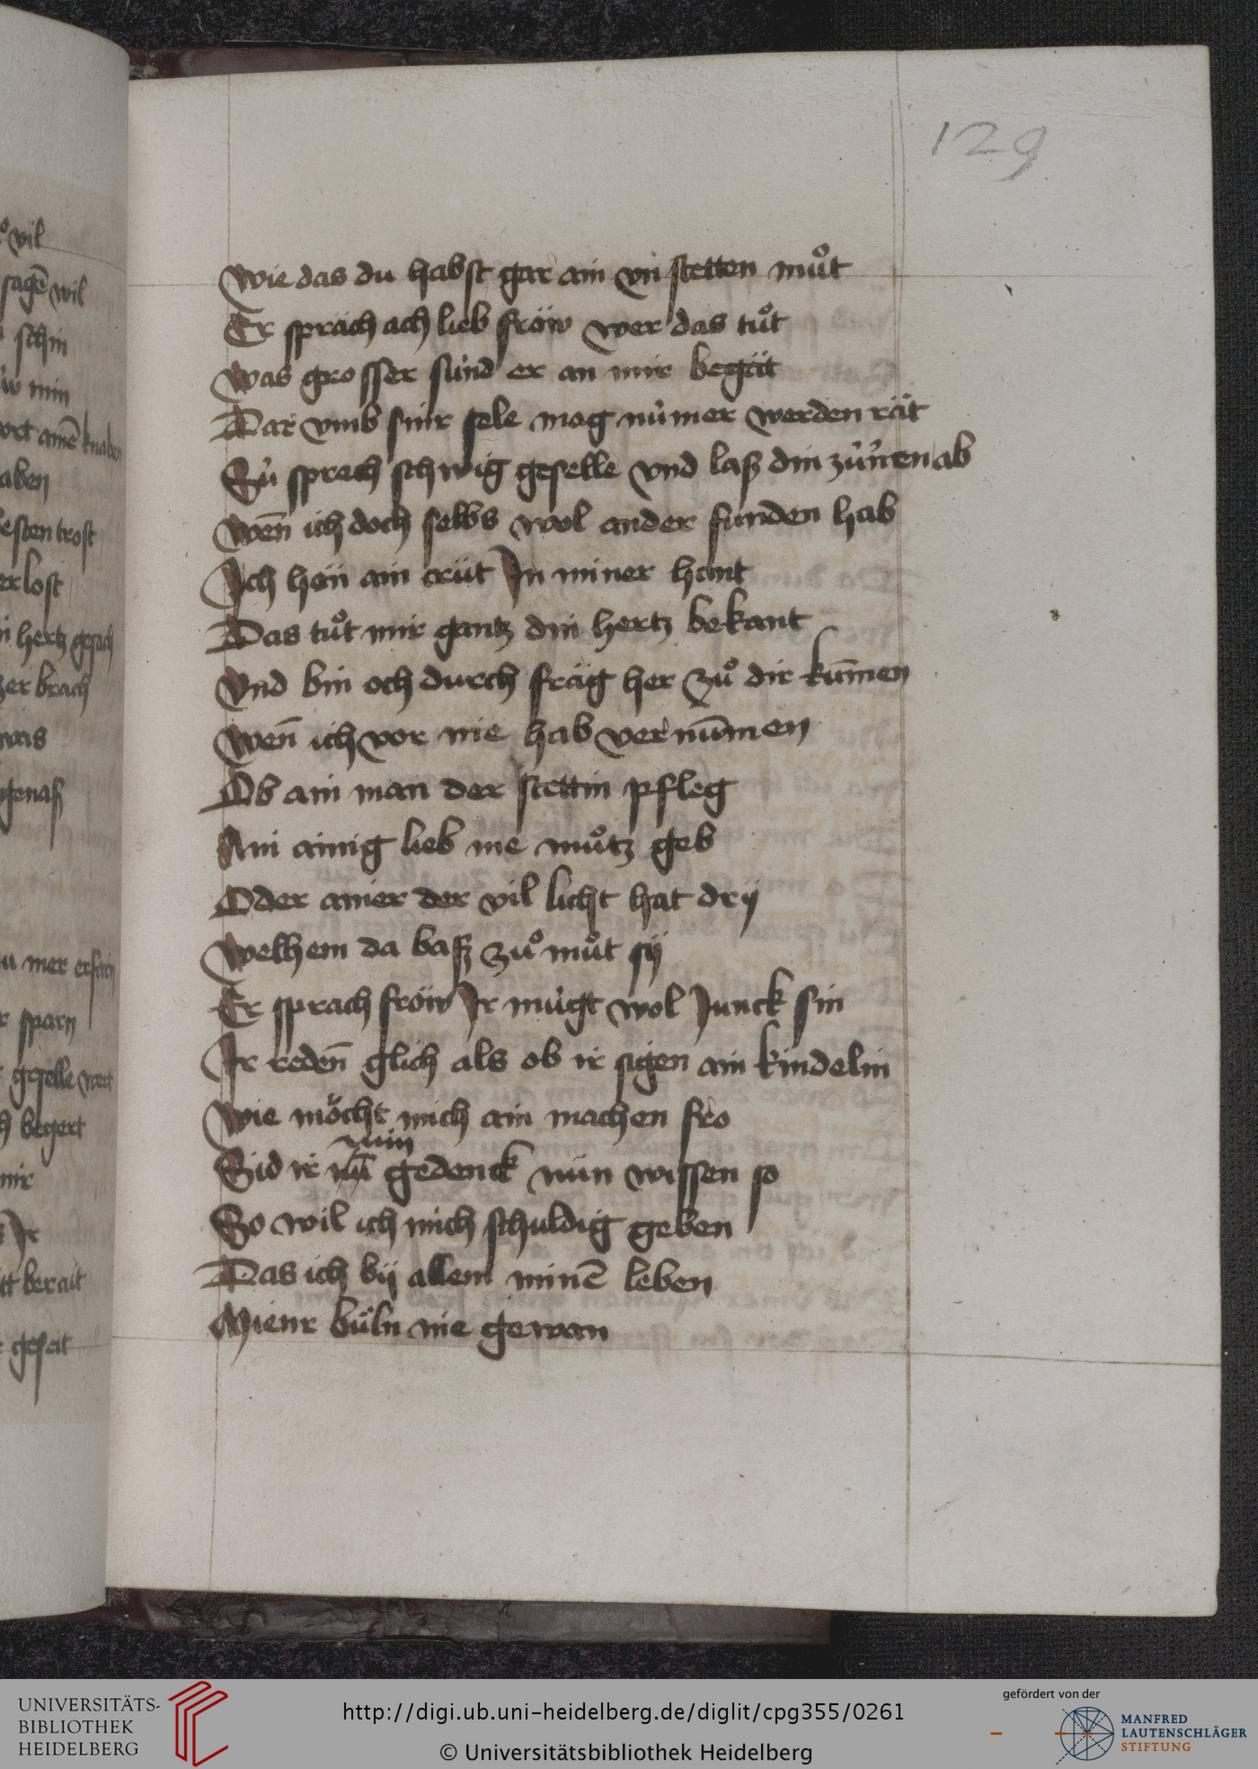 129
Wie das du habst gar ain vn stetten muͦt
Er sprach ach lieb fröw wer das tuͦt
Was grosser sünd er an mir begät
Dar vmb sinr sele mag nümer werden rät
Sü sprach schwig geselle vnd laß din zürnen ab
Wen̄ ich doch selbs wol ander funden hab
Ich han ain crüt In miner hant
Das tuͦt mir gantz din hertz bekant
Vnd bin och durch fräg her zuͦ dir kum̄en
Wen̄ ich vor nie hab vernum̄en
Ob ain man der stettin pfleg
Ain ainig lieb nie muͦtz geb
Oder ainer der vil licht hat drij
Welhem da baß zuͦ muͦt sij
Er sprach fröw Ir mügt wol Junck sin
Ir reden̄ glich als ob ir sigen ain kindelin
Wie möcht mich ain machen fro
min
Sid ir gedenck nün wissen so
So wil ich mich schuldig geben
Das ich bij allem minē leben
Mienr büln nie gewan
vil
sagē wil
schin
min
aben
esten trost
erlost
hertz gesach
er brach
was
genaß
mer
sparn
geselle
begert
mir
Ir
berait
geseit
UNIVERSITÄTS-
BIBLIOTHEK
HEIDELBERG
http://digi.ub.uni-heidelberg.de/diglit/cpg355/0261
© Universitätsbibliothek Heidelberg
gefördert von der
MANFRED
LAUTENSCHLÄGER
STIFTUNG